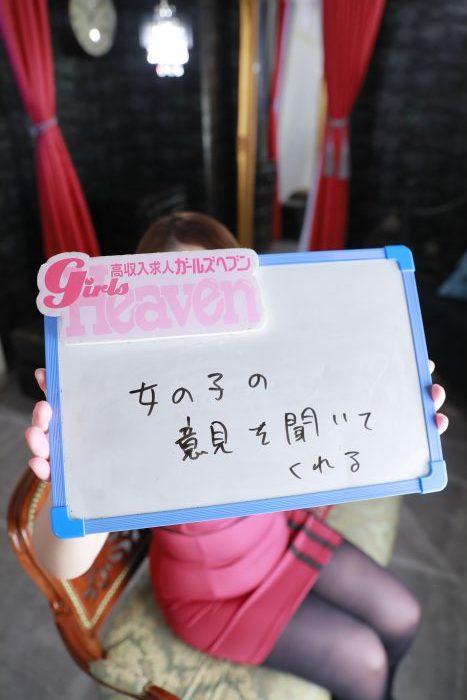 高収入求人ガールズヘブン
Girls
Heaven
女の子の
意見を聞いて
くれる